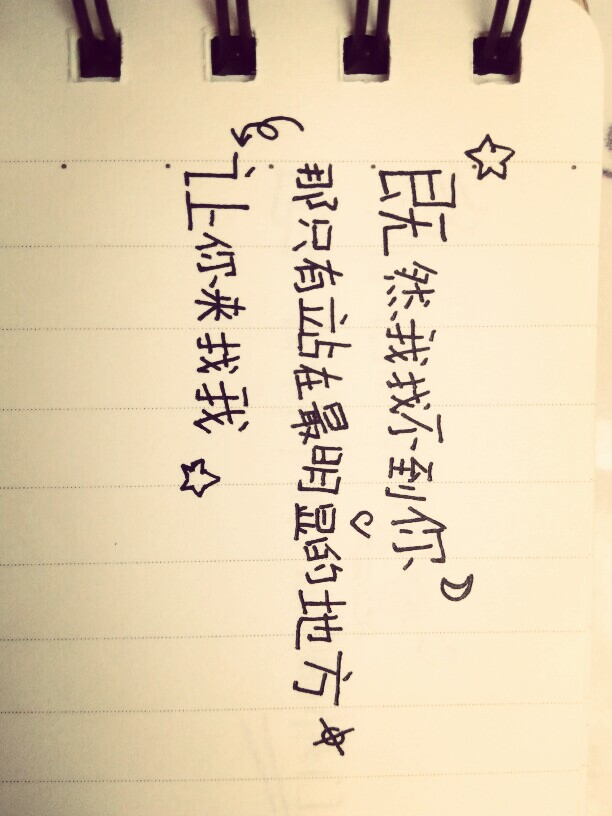 既然我找不到你
那只有站在最明显的地方
让你来找我